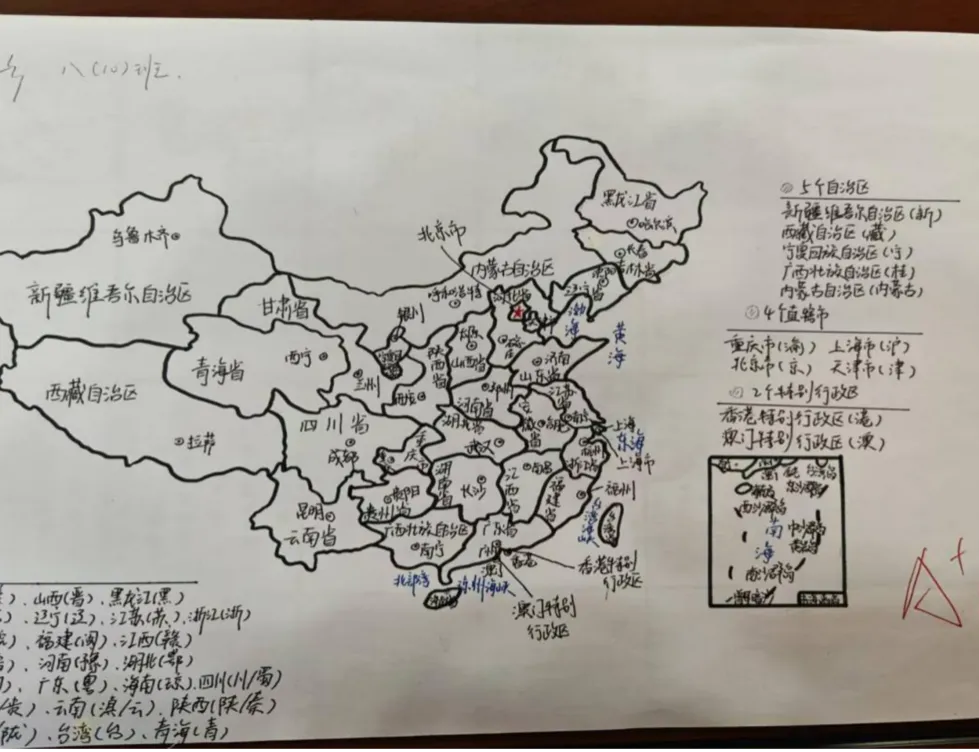 八(10)班.
黑龙江省
哈尔滨
北京市
长春
吉林省
乌鲁木市
内蒙古自治区
呼和浩特
河北省
辽宁省
渤海
黄海
新疆维吾尔自治区
甘肃省
银川
青海省
西宁
兰州
陕西省
山西省
济南
山东省
西藏自治区
拉萨
四川省
成都
河南省
郑州
湖北省
武汉
上海
东海
上海市
重庆市
湖南省
长沙
江西省
南昌
福建省
福州
浙江省
贵阳
贵州省
昆明
云南省
广西壮族自治区
南宁
广东省
台湾海峡
香港特别
行政区
澳门特别
行政区
北部湾
琼州海峡
5个自治区
新疆维吾尔自治区(新)
西藏自治区(藏)
宁夏回族自治区(宁)
广西壮族自治区(桂)
内蒙古自治区(内蒙古)
4个直辖市
重庆市(渝) 上海市(沪)
北京市(京) 天津市(津)
2个特别行政区
香港特别行政区(港)
澳门特别行政区(澳)
南海
A+
)、山西(晋)、黑龙江(黑)
)、辽宁(辽)、江苏(苏)、浙江(浙)
)、福建(闽)、江西(赣)
)、河南(豫)、湖北(鄂)
)、广东(粤)、海南(琼)、四川(川/蜀)
/贵)、云南(滇/云)、陕西(陕/秦)
/陇)、台湾(台)、青海(青)